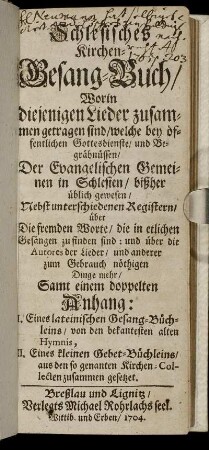 Schlesisches
Kirchen-
Gesang-Buch/
Worin
diejenigen Lieder zusam-
men getragen sind/welche bey öf-
fentlichen Gottesdienste/und Be-
gräbnüssen/
Der Evangelischen Gemei-
nen in Schlesien/ bißher
üblich gewesen/
Nebst unterschiedenen Registern/
über
Die fremden Worte/ die in etlichen
Gesängen zu finden sind: und über die
Autores der Lieder/ und anderer
zum Gebrauch nöthigen
Dinge mehr/
Samt einem doppelten
Anhang:
I. Eines lateinischen Gesang-Büch-
leins/ von den bekantesten alten
Hymnis,
II. Eines kleinen Gebet-Büchleins/
aus den so genanten Kirchen-Col-
lecten zusammen gesetzet.
Breßlau und Lignitz/
Verlegts Michael Rohrlachs seel.
Wittib. und Erben/ 1704.